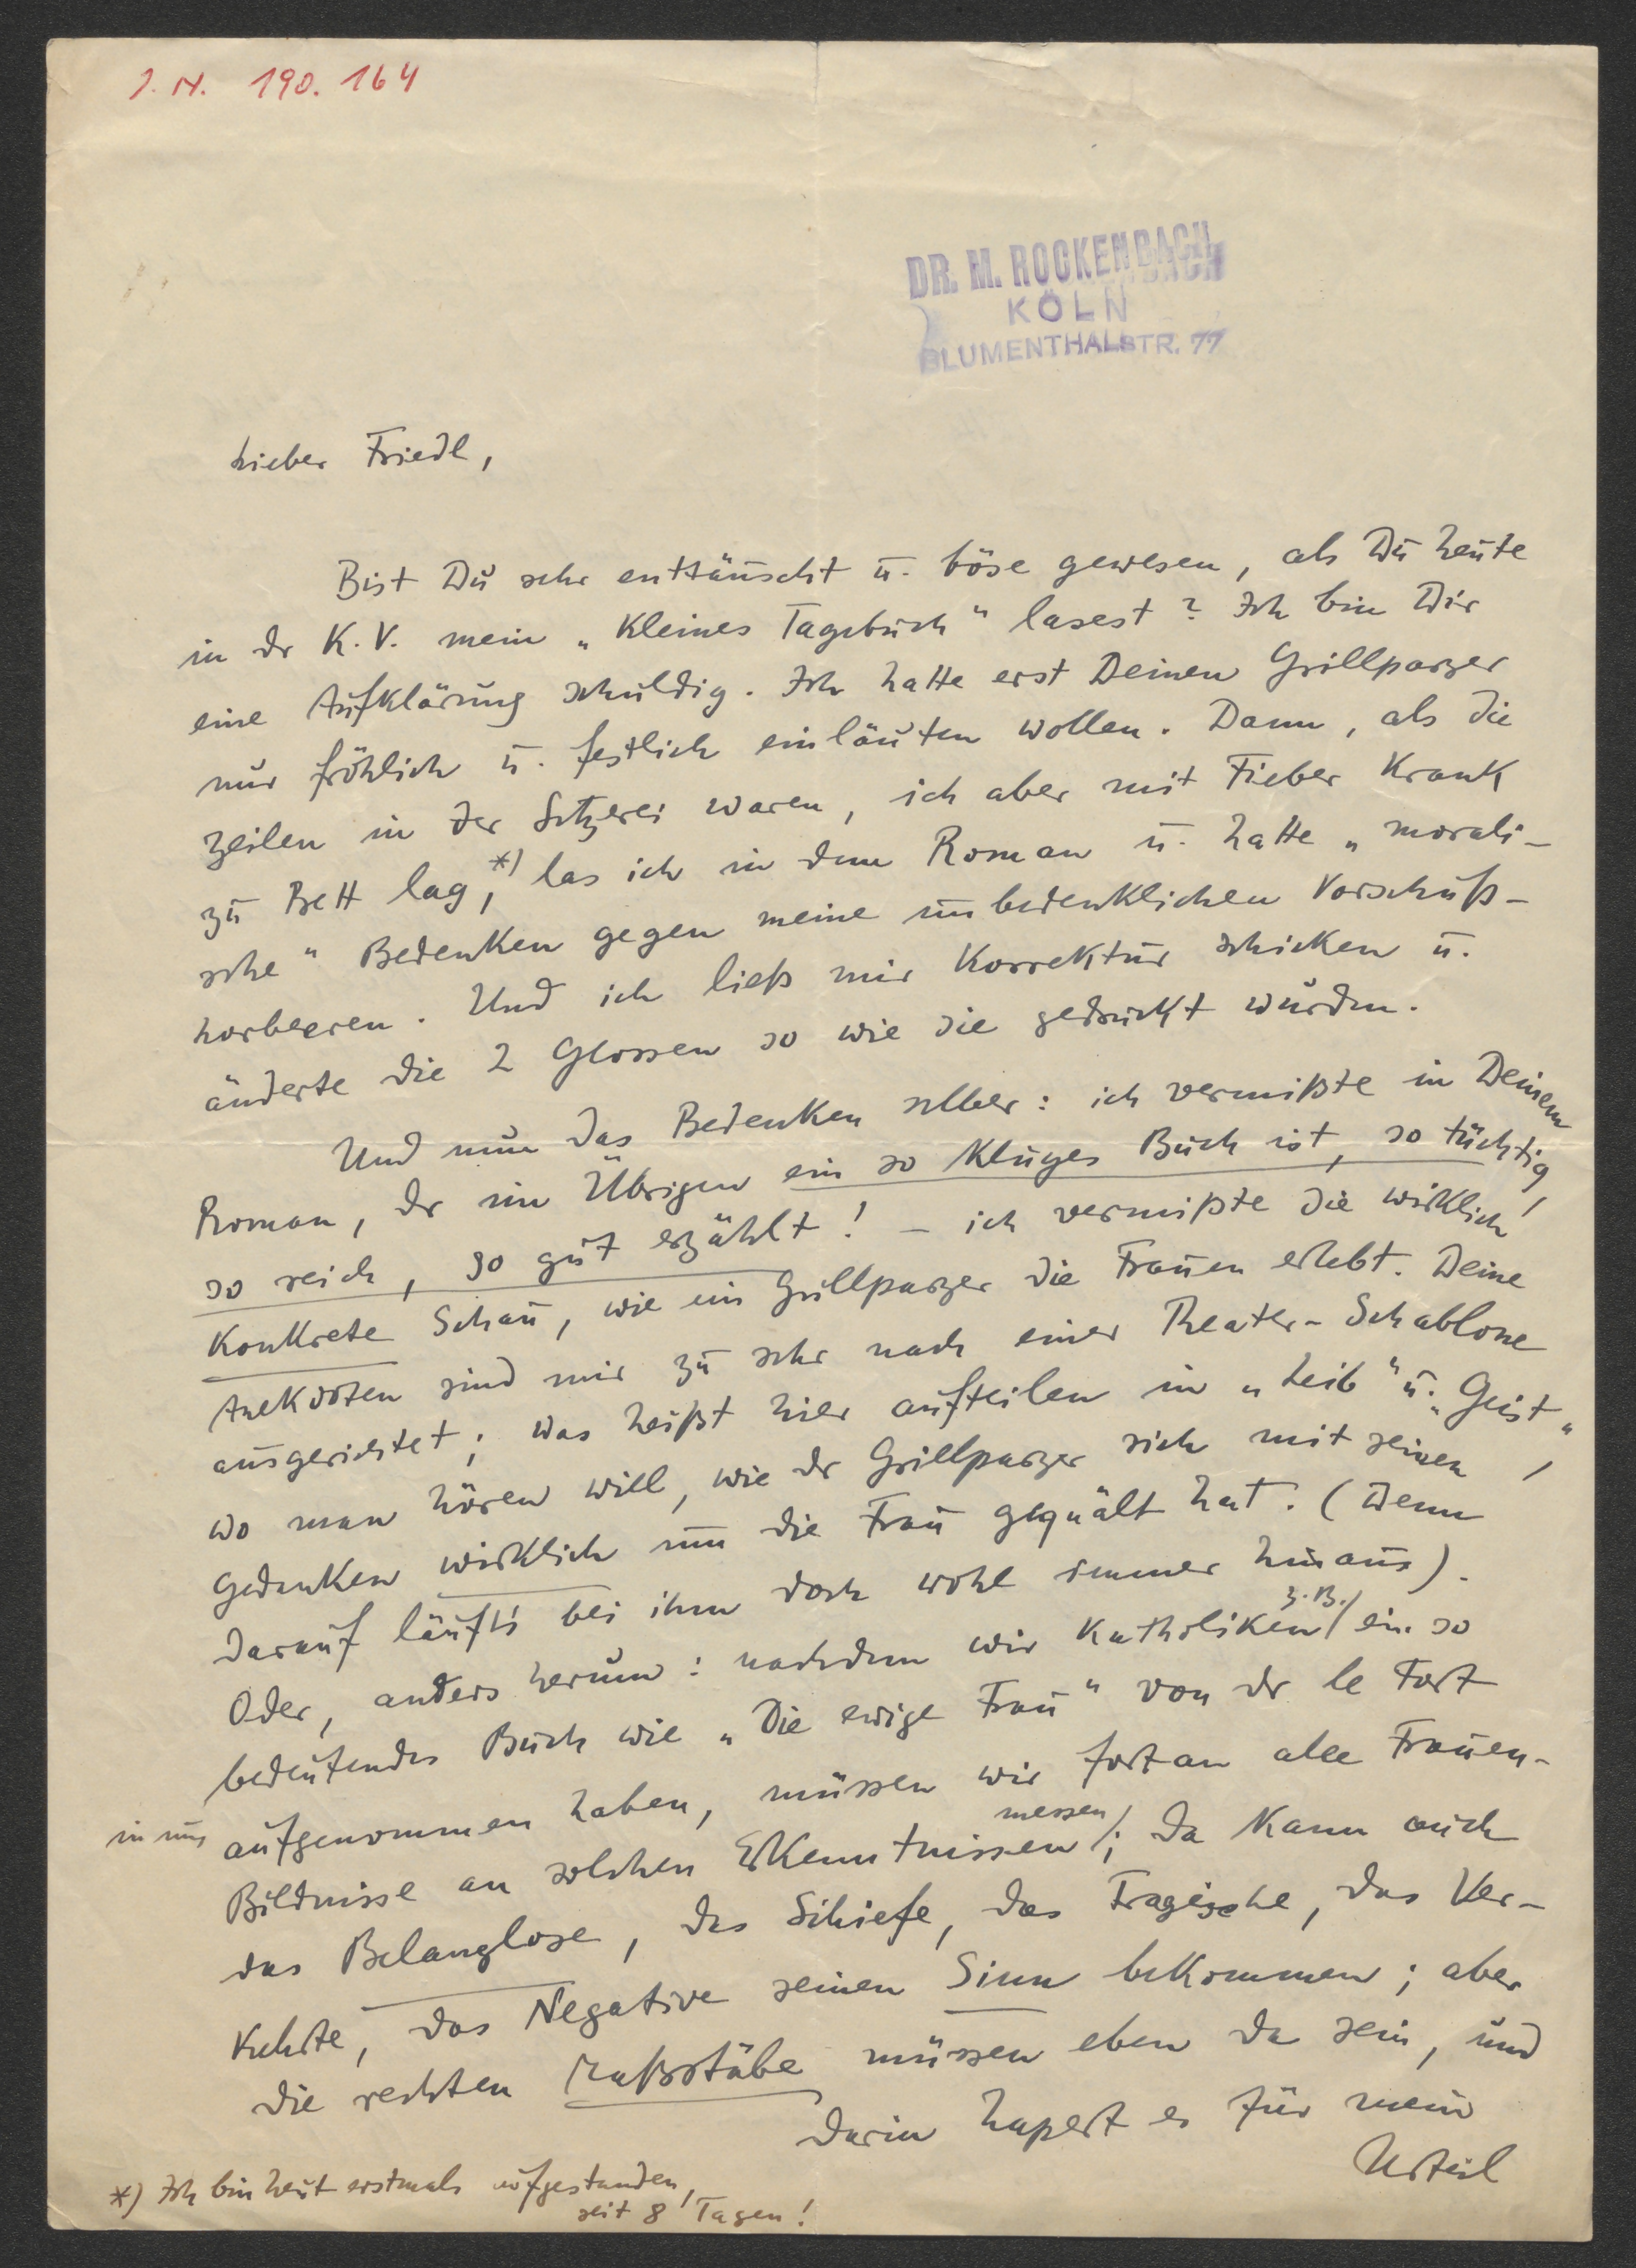 I. N. 190. 164
DR. M. ROCKENBACH
KÖLN
BLUMENTHALSTR. 77
Lieber Friedl,
Bist Du sehr enttäuscht u. böse gewesen, als Du heute
in der K. V. mein „Kleines Tagebuch" lasest? Ich bin Dir
eine Aufklärung schuldig. Ich hatte erst Deinen Grillparzer
nur fröhlich u. festlich einläuten wollen. Dann, als die
Zeilen in der Setzerei waren, ich aber mit Fieber krank
zu Bett lag,*) las ich in dem Roman u. hatte „morali-
sche" Bedenken gegen meine unbedenklichen Vorschuß-
lorbeeren. Und ich ließ mir Korrektur schicken u.
änderte die 2 Glossen so wie sie gedruckt wurden.
Und nun das Bedenken selber: ich vermißte in Deinem
Roman, der im Übrigen ein so kluges Buch ist, so tüchtig,
so reich, so gut erzählt! – ich vermißte die wirklich
konkrete Schau, wie ein Grillparzer die Frauen erlebt. Deine
Anekdoten sind mir zu sehr nach einer Theater-Schablone
ausgerichtet; was heißt hier aufteilen in „Leib" u. „Geist",
wo man hören will, wie der Grillparzer sich mit seinen
Gedanken wirklich um die Frau gequält hat. (Denn
darauf läuft's bei ihm doch wohl immer hinaus).
Oder, anders herum: nachdem wir Katholiken z. B. ein so
bedeutendes Buch wie „Die ewige Frau" von der le Fort
in uns aufgenommen haben, müssen wir fortan alle Frauen-
Bildnisse an solchen Erkenntnissen messen; da kann auch
das Belanglose, das Schiefe, das Tragische, das Ver-
kehrte, das Negative seinen Sinn bekommen; aber
die rechten Maßstäbe müssen eben da sein, und
darin hapert es für mein
Urteil
*) Ich bin heut erstmals aufgestanden,
seit 8 Tagen!